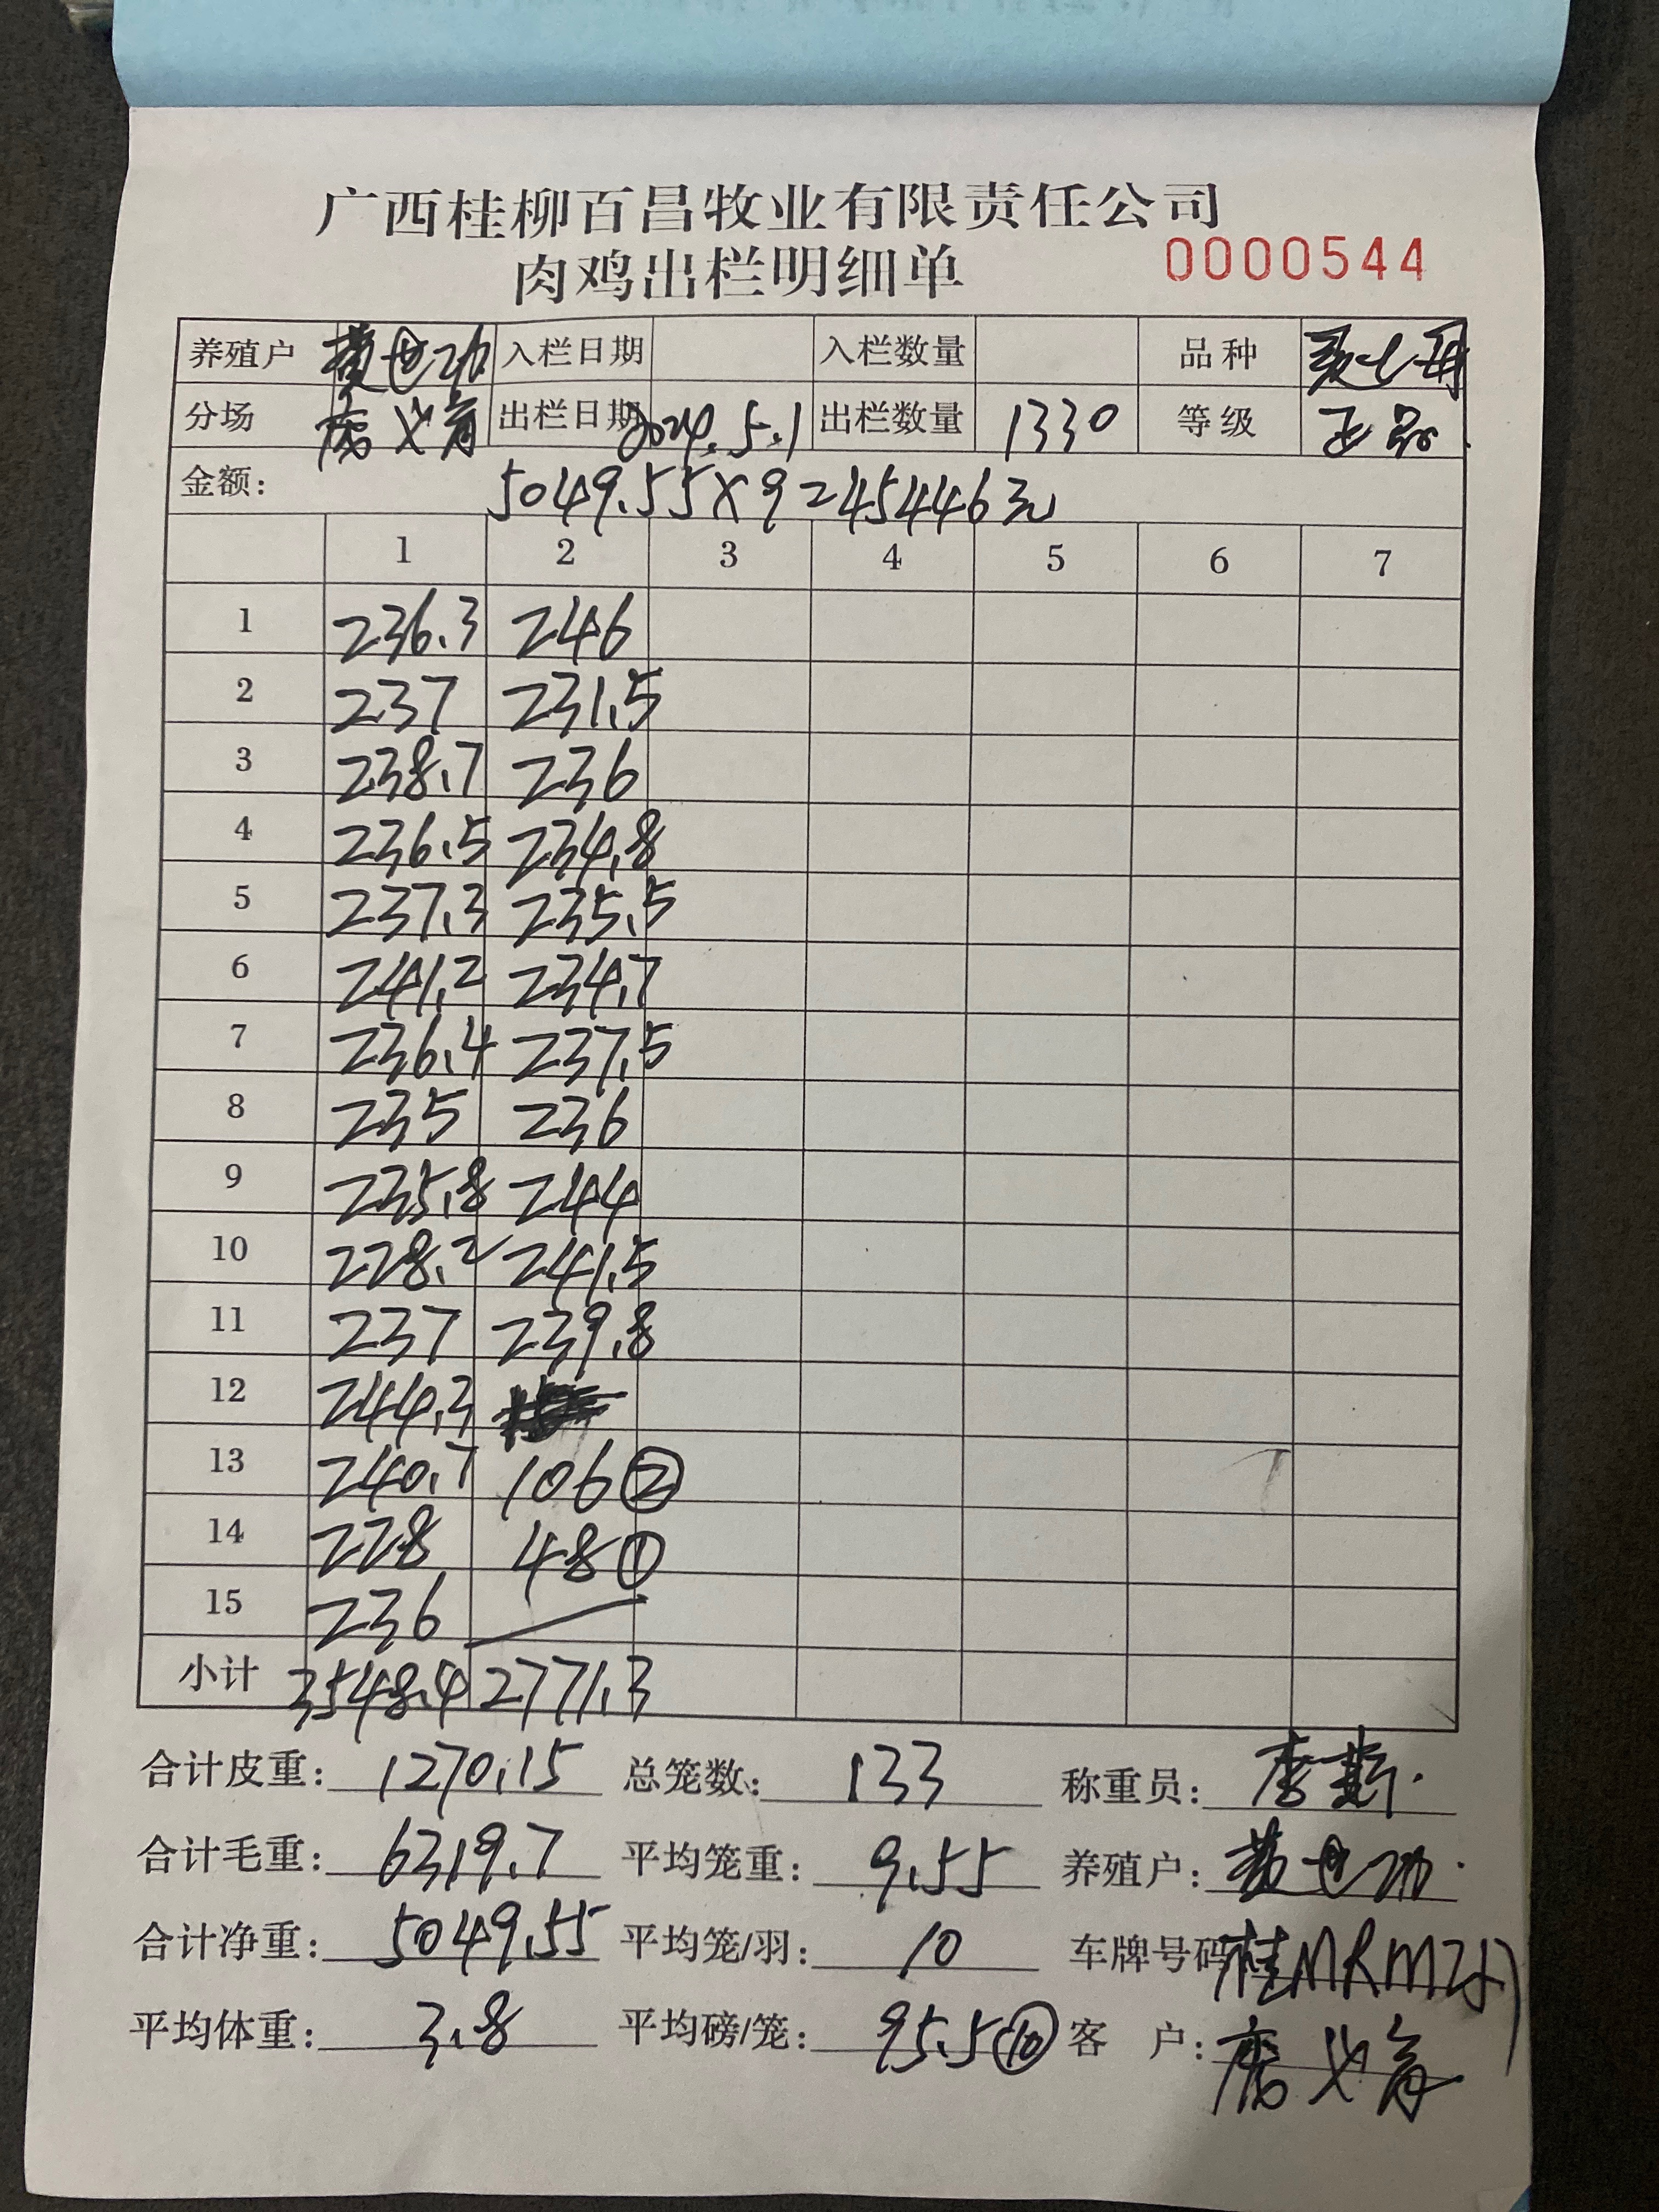 广西桂柳百昌牧业有限责任公司
肉鸡出栏明细单 0000544
养殖户 黄世功 入栏日期 入栏数量 品种
分场 唐义育 出栏日期 2024.5.1 出栏数量 1330 等级 正品.
金额: 5049.55×9=45446元
1 2 3 4 5 6 7
1 236.3 246
2 237 231.5
3 238.7 236
4 236.5 234.8
5 237.3 235.5
6 241.2 234.7
7 236.4 237.5
8 235 236
9 235.8 244
10 228.2 241.5
11 237 239.8
12 244.3
13 240.7 106②
14 228 48①
15 236
小计 3548.4 2771.3
合计皮重: 1270.15 总笼数: 133 称重员: 李
合计毛重: 6319.7 平均笼重: 9.55 养殖户: 黄世功.
合计净重: 5049.55 平均笼/羽: 10 车牌号码 桂MRM
平均体重: 3.8 平均磅/笼: 95.5⑩ 客 户: 唐义育